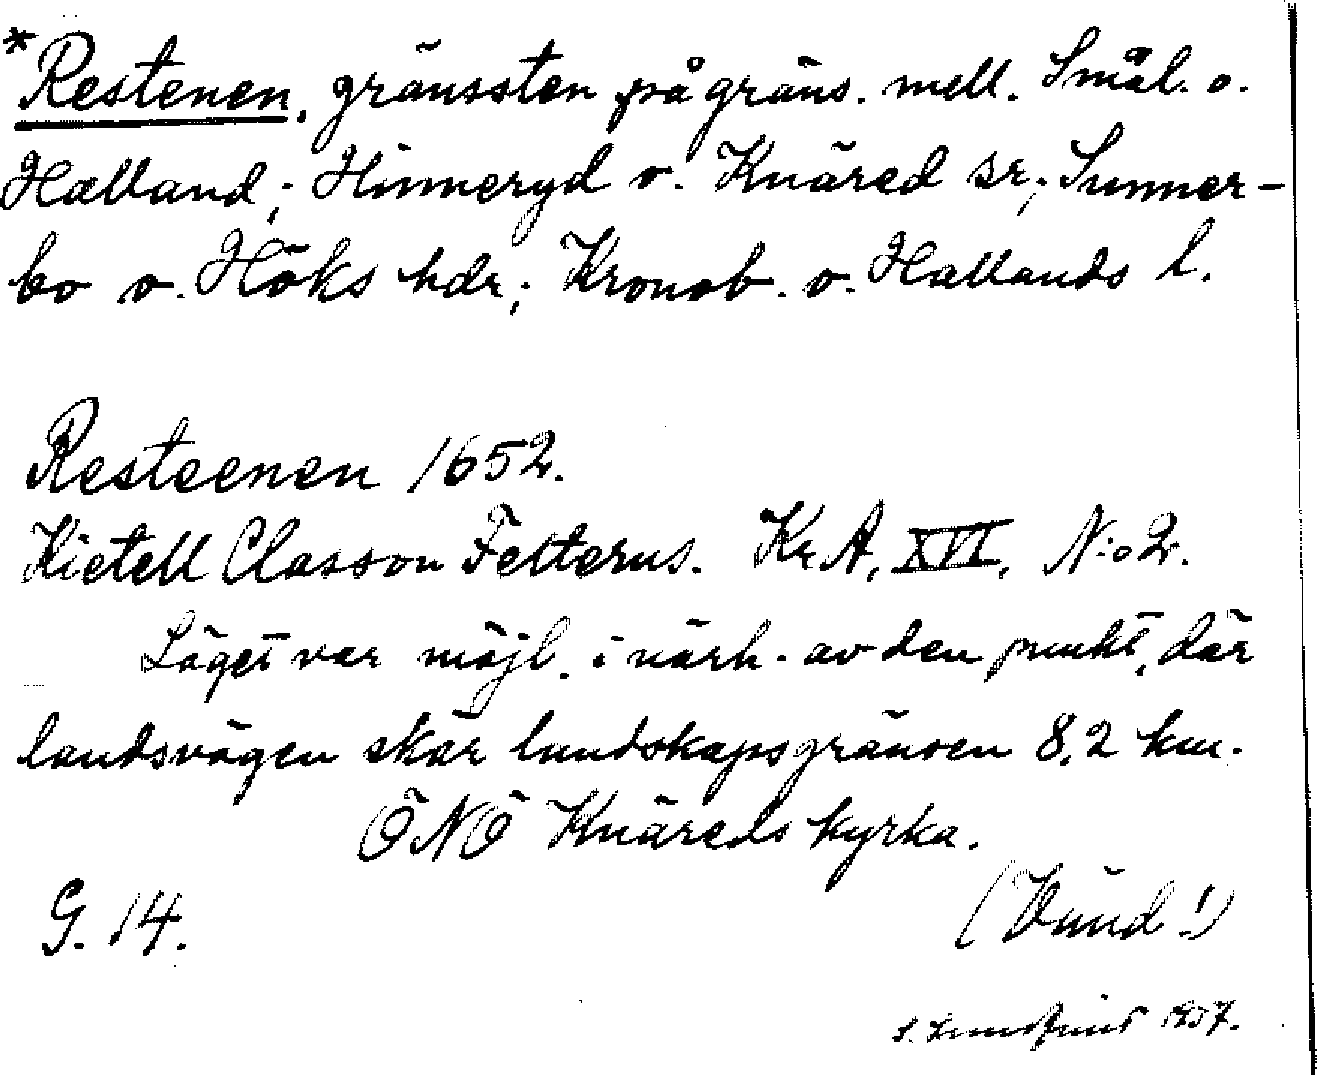 *Restenen, gränssten på gräns. mell. Smål. o.
Halland; Hinneryd o. Knäred sr; Sunner-
bo o. Höks hdr; Kronob. o. Hallands l.
Resteenen 1652.
Kietell Classon Felterus. KrA, XVI, N:o 2.
Läget var möjl. i närh. av den punkt, där
landsvägen skär landskapsgränsen 8,2 km.
ÖNÖ Knäreds kyrka.
G. 14.
(Vänd!)
1937.